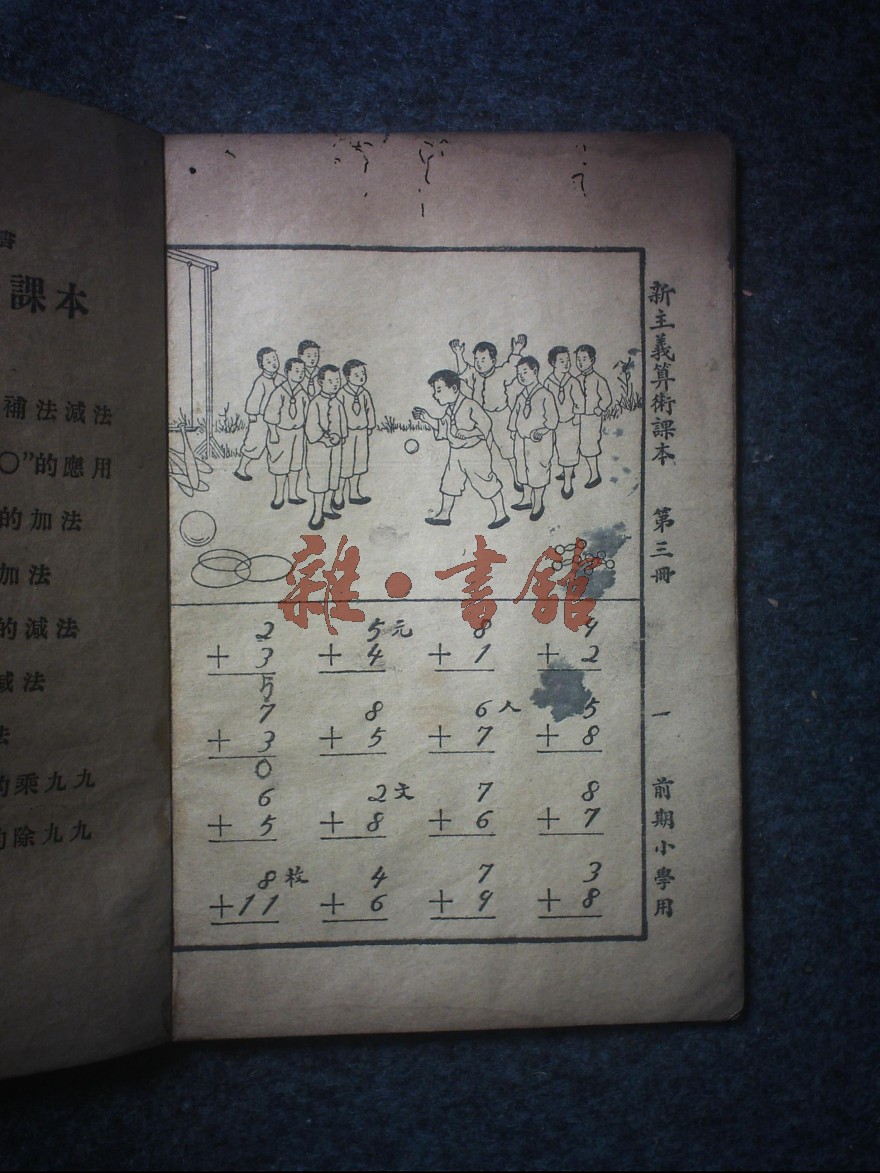 書
課本
補法減法
〇”的應用
的加法
加法
的減法
減法
法
的乘九九
的除九九
新主義算術課本 第三冊 一 前期小學用
雜·書館
2 5元 8 4
+ 3 + 4 + 1 + 2
5
7 8 6人 5
+ 3 + 5 + 7 + 8
0
6 2文 7 8
+ 5 + 8 + 6 + 7
8枚 4 7 3
+11 + 6 + 9 + 8